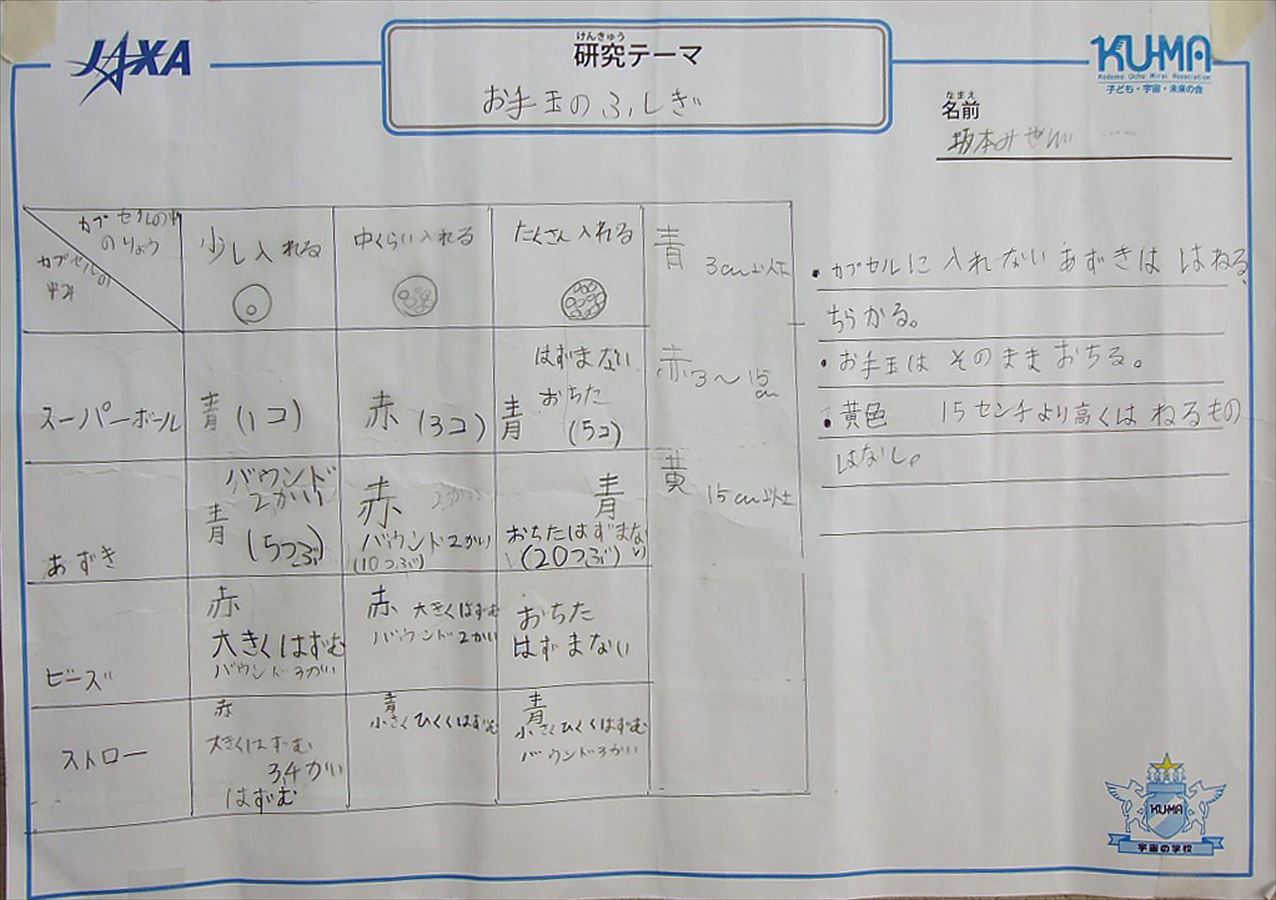 JAXA
けんきゅう
研究テーマ
お手玉のふしぎ
KU-MA
Kodomo Uchu Mirai Association
子ども・宇宙・未来の会
なまえ
名前
坂本み
カプセルの中
のりょう
カプセルの
中み
少し入れる
中くらい入れる
たくさん入れる
青
3cm以下
赤 3〜15
cm
黄
15cm以上
スーパーボール
青 (1コ)
赤 (3コ)
はずまない
おちた
青 (5コ)
あずき
バウンド
2かい
青 (5つぶ)
赤 2かい
バウンド2かい
(10つぶ)
青
おちたはずまない
(20つぶ)
ビーズ
赤
大きくはずむ
バウンド3かい
赤 大きくはずむ
バウンド2かい
おちた
はずまない
ストロー
赤
大きくはずむ
3,4かい
はずむ
青
小さくひくくはずむ
青
小さくひくくはずむ
バウンド3かい
・カプセルに入れないあずきは はねる、
ちらかる。
・お手玉は そのまま おちる。
・黄色 15センチより高くは ねるもの
はなし。
KU-MA
宇宙の学校